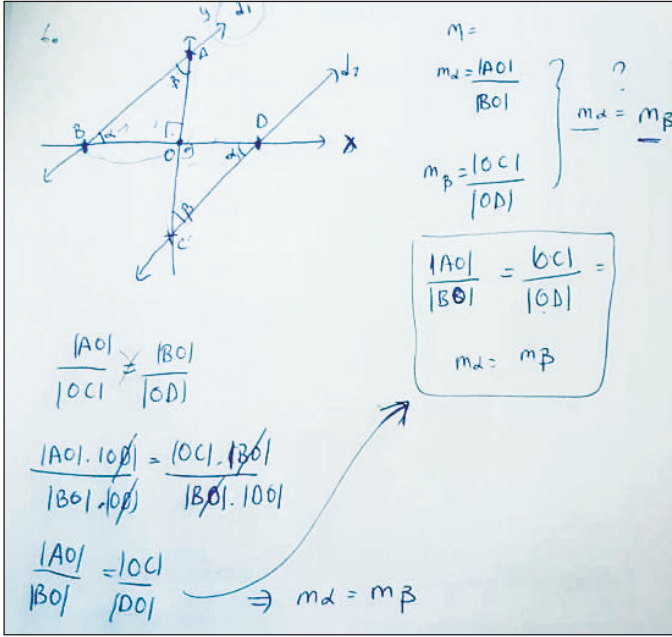 6.
y d1
A
β
d2
B α D
O α x
β
C
m =
mα = |AO| / |BO|
?
mα = mβ
mβ = |OC| / |OD|
|AO| / |BO| = |OC| / |OD| =
mα = mβ
|AO| / |OC| = |BO| / |OD|
|AO|.|OD| / |BO|.|OD| = |OC|.|BO| / |BO|.|DO|
|AO| / |BO| = |OC| / |DO| ⇒ mα = mβ